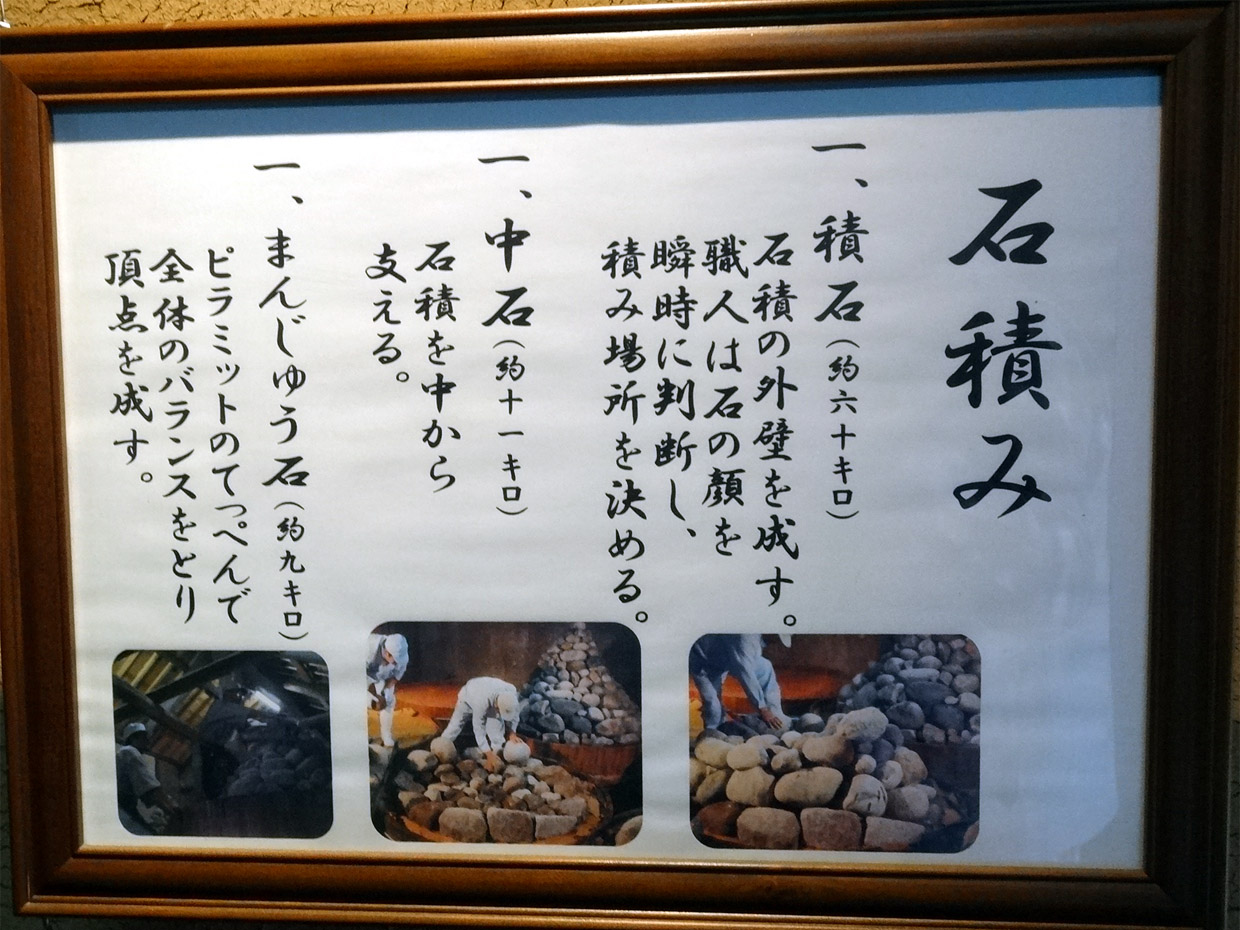 石積み
一、積石（約六十キロ）
石積の外壁を成す。
職人は石の顔を
瞬時に判断し、
積み場所を決める。
一、中石（約十一キロ）
石積を中から
支える。
一、まんじゅう石（約九キロ）
ピラミットのてっぺんで
全体のバランスをとり
頂点を成す。